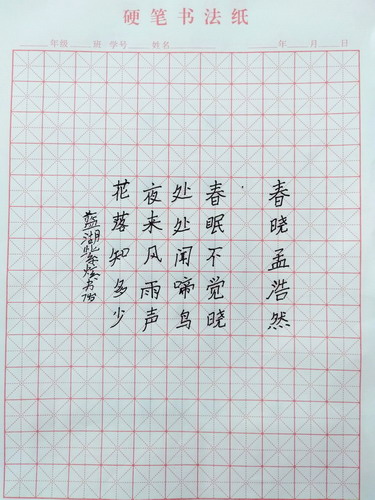 硬笔书法纸
年级 班 学号 姓名 年 月 日
春晓孟浩然
春眠不觉晓
处处闻啼鸟
夜来风雨声
花落知多少
蓝湖紫炫书